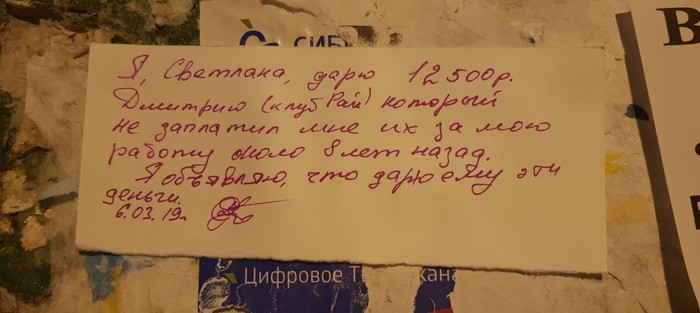 СИБ
Я, Светлана, дарю 12 500р.
Дмитрию (клуб Рай) который
не заплатил мне их за мою
работу около 8 лет назад.
Я объявляю, что дарю ему эти
деньги.
6.03.19г.
Цифровое Т кана
В